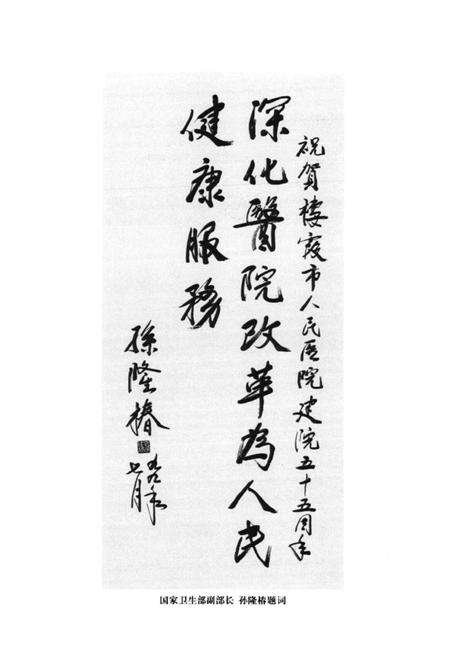 祝賀棲霞市人民医院建院五十五周年
深化醫院改革為人民
健康服務
孫隆椿
七月
国家卫生部副部长 孙隆椿题词